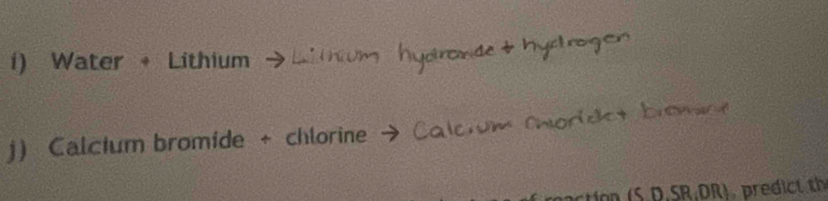 i) Water + Lithium → Lithium hydroxide + hydrogen
j) Calcium bromide + chlorine → Calcium chloride + bromine
reaction (S,D,SR,DR), predict th